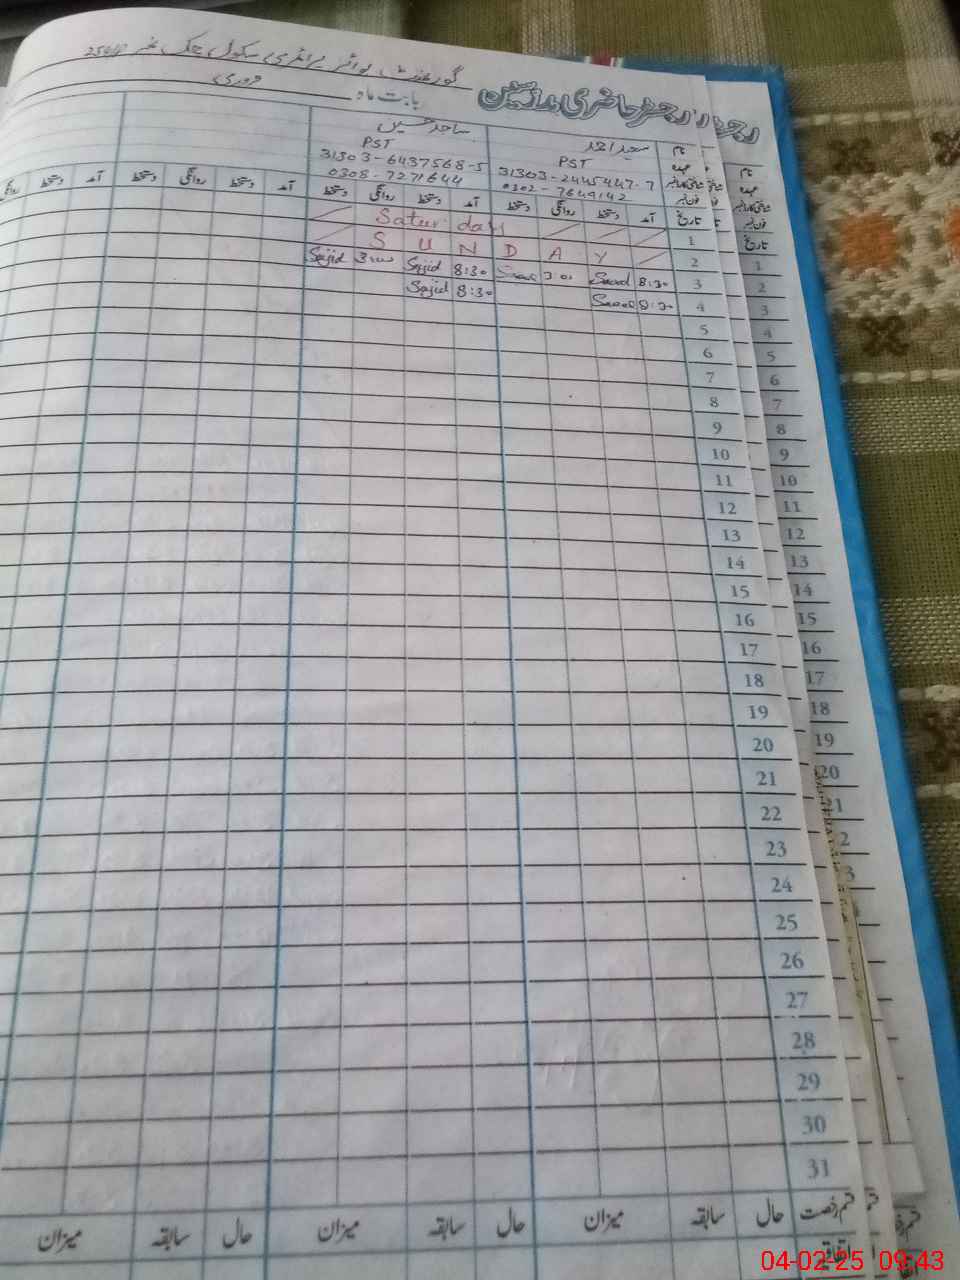 گورنمنٹ بوائز پرائمری سکول چک نمبر
رجسٹر حاضری مدرسین
بابت ماہ فروری
نام سعید احمد ساجد حسین
عہدہ PST PST
31303-2445447-7 31303-6437568-5
فون نمبر 0302-7649142 0308-7271644
تاریخ آمد دستخط روانگی دستخط آمد دستخط روانگی دستخط آمد دستخط روانگی دستخط آمد دستخط روانگی
1 Saturday
2 SUNDAY
3 8:30 Saeed 3:00 Saeed 8:30 Sajid 3:00 Sajid
4 8:30 Saeed 8:30 Sajid
5
6
7
8
9
10
11
12
13
14
15
16
17
18
19
20
21
22
23
24
25
26
27
28
29
30
31
قسم رخصت حال سابقہ میزان حال سابقہ میزان حال سابقہ میزان
اتفاقیہ
04-02-25 09:43